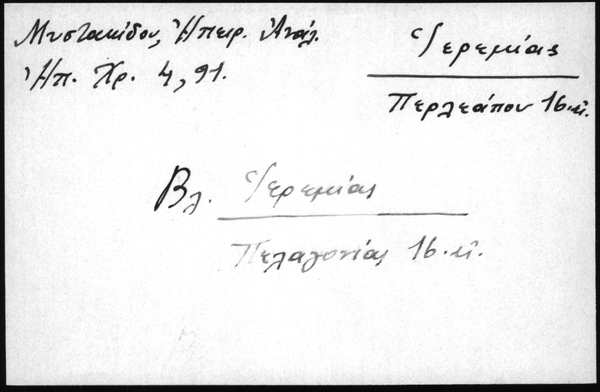 Μυστακίδου, Ἠπειρ. Ἀνάλ.
Ἠπ. Χρ. 4, 91.
Ἱερεμίας
Περλεάπου 16.αἰ.
Βλ. Ἱερεμίας
Πελαγονίας 16.αἰ.